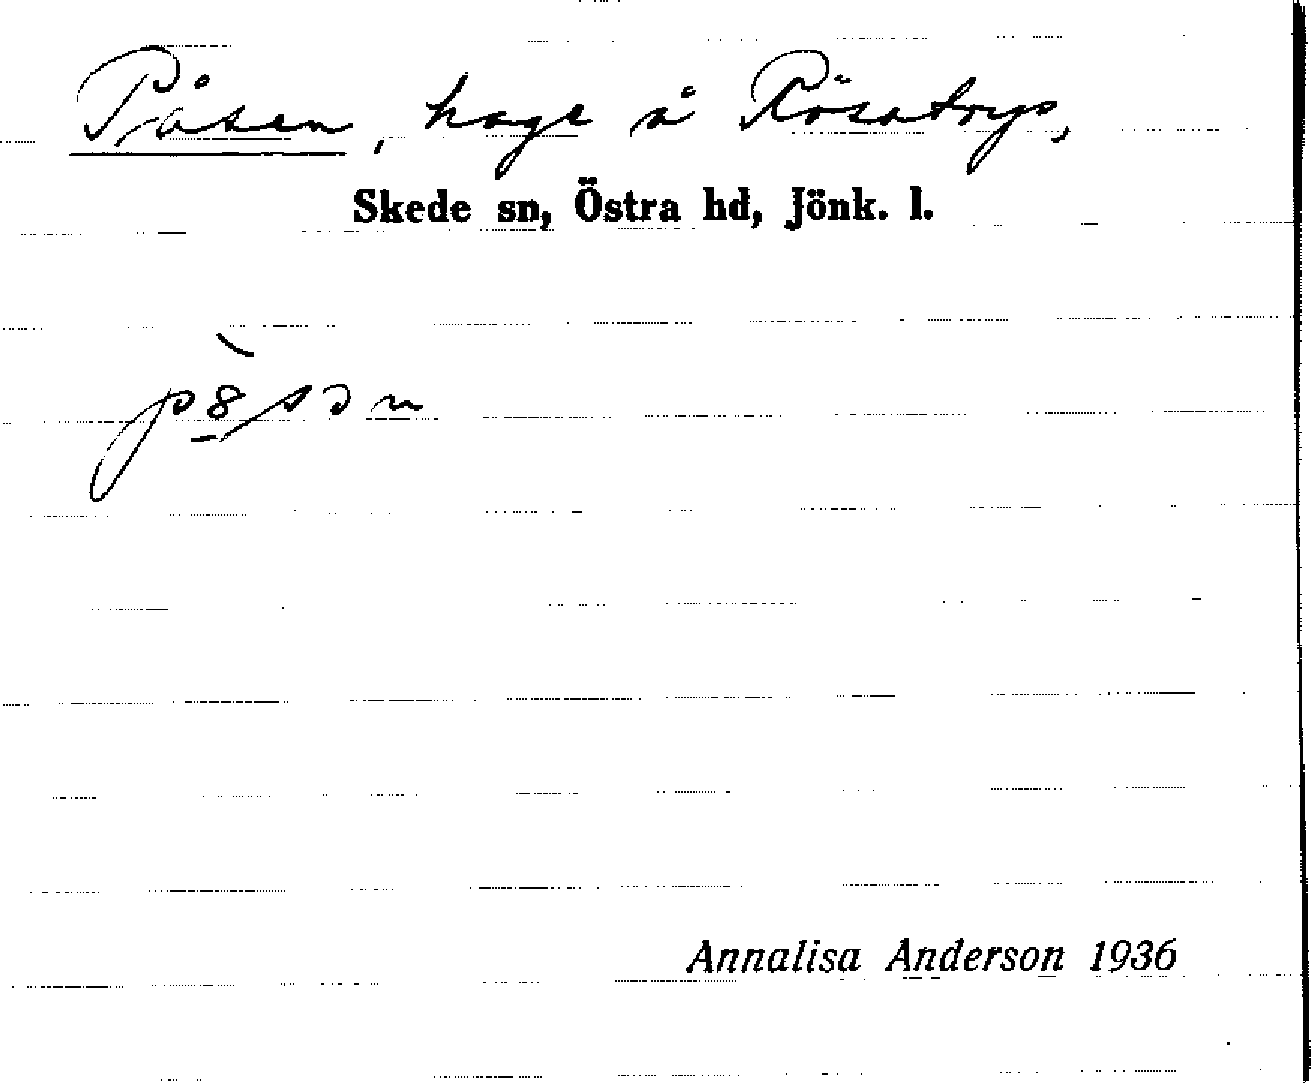 Påsen, hage å Rösatrys,
Skede sn, Östra hd, Jönk. l.
Annalisa Anderson 1936